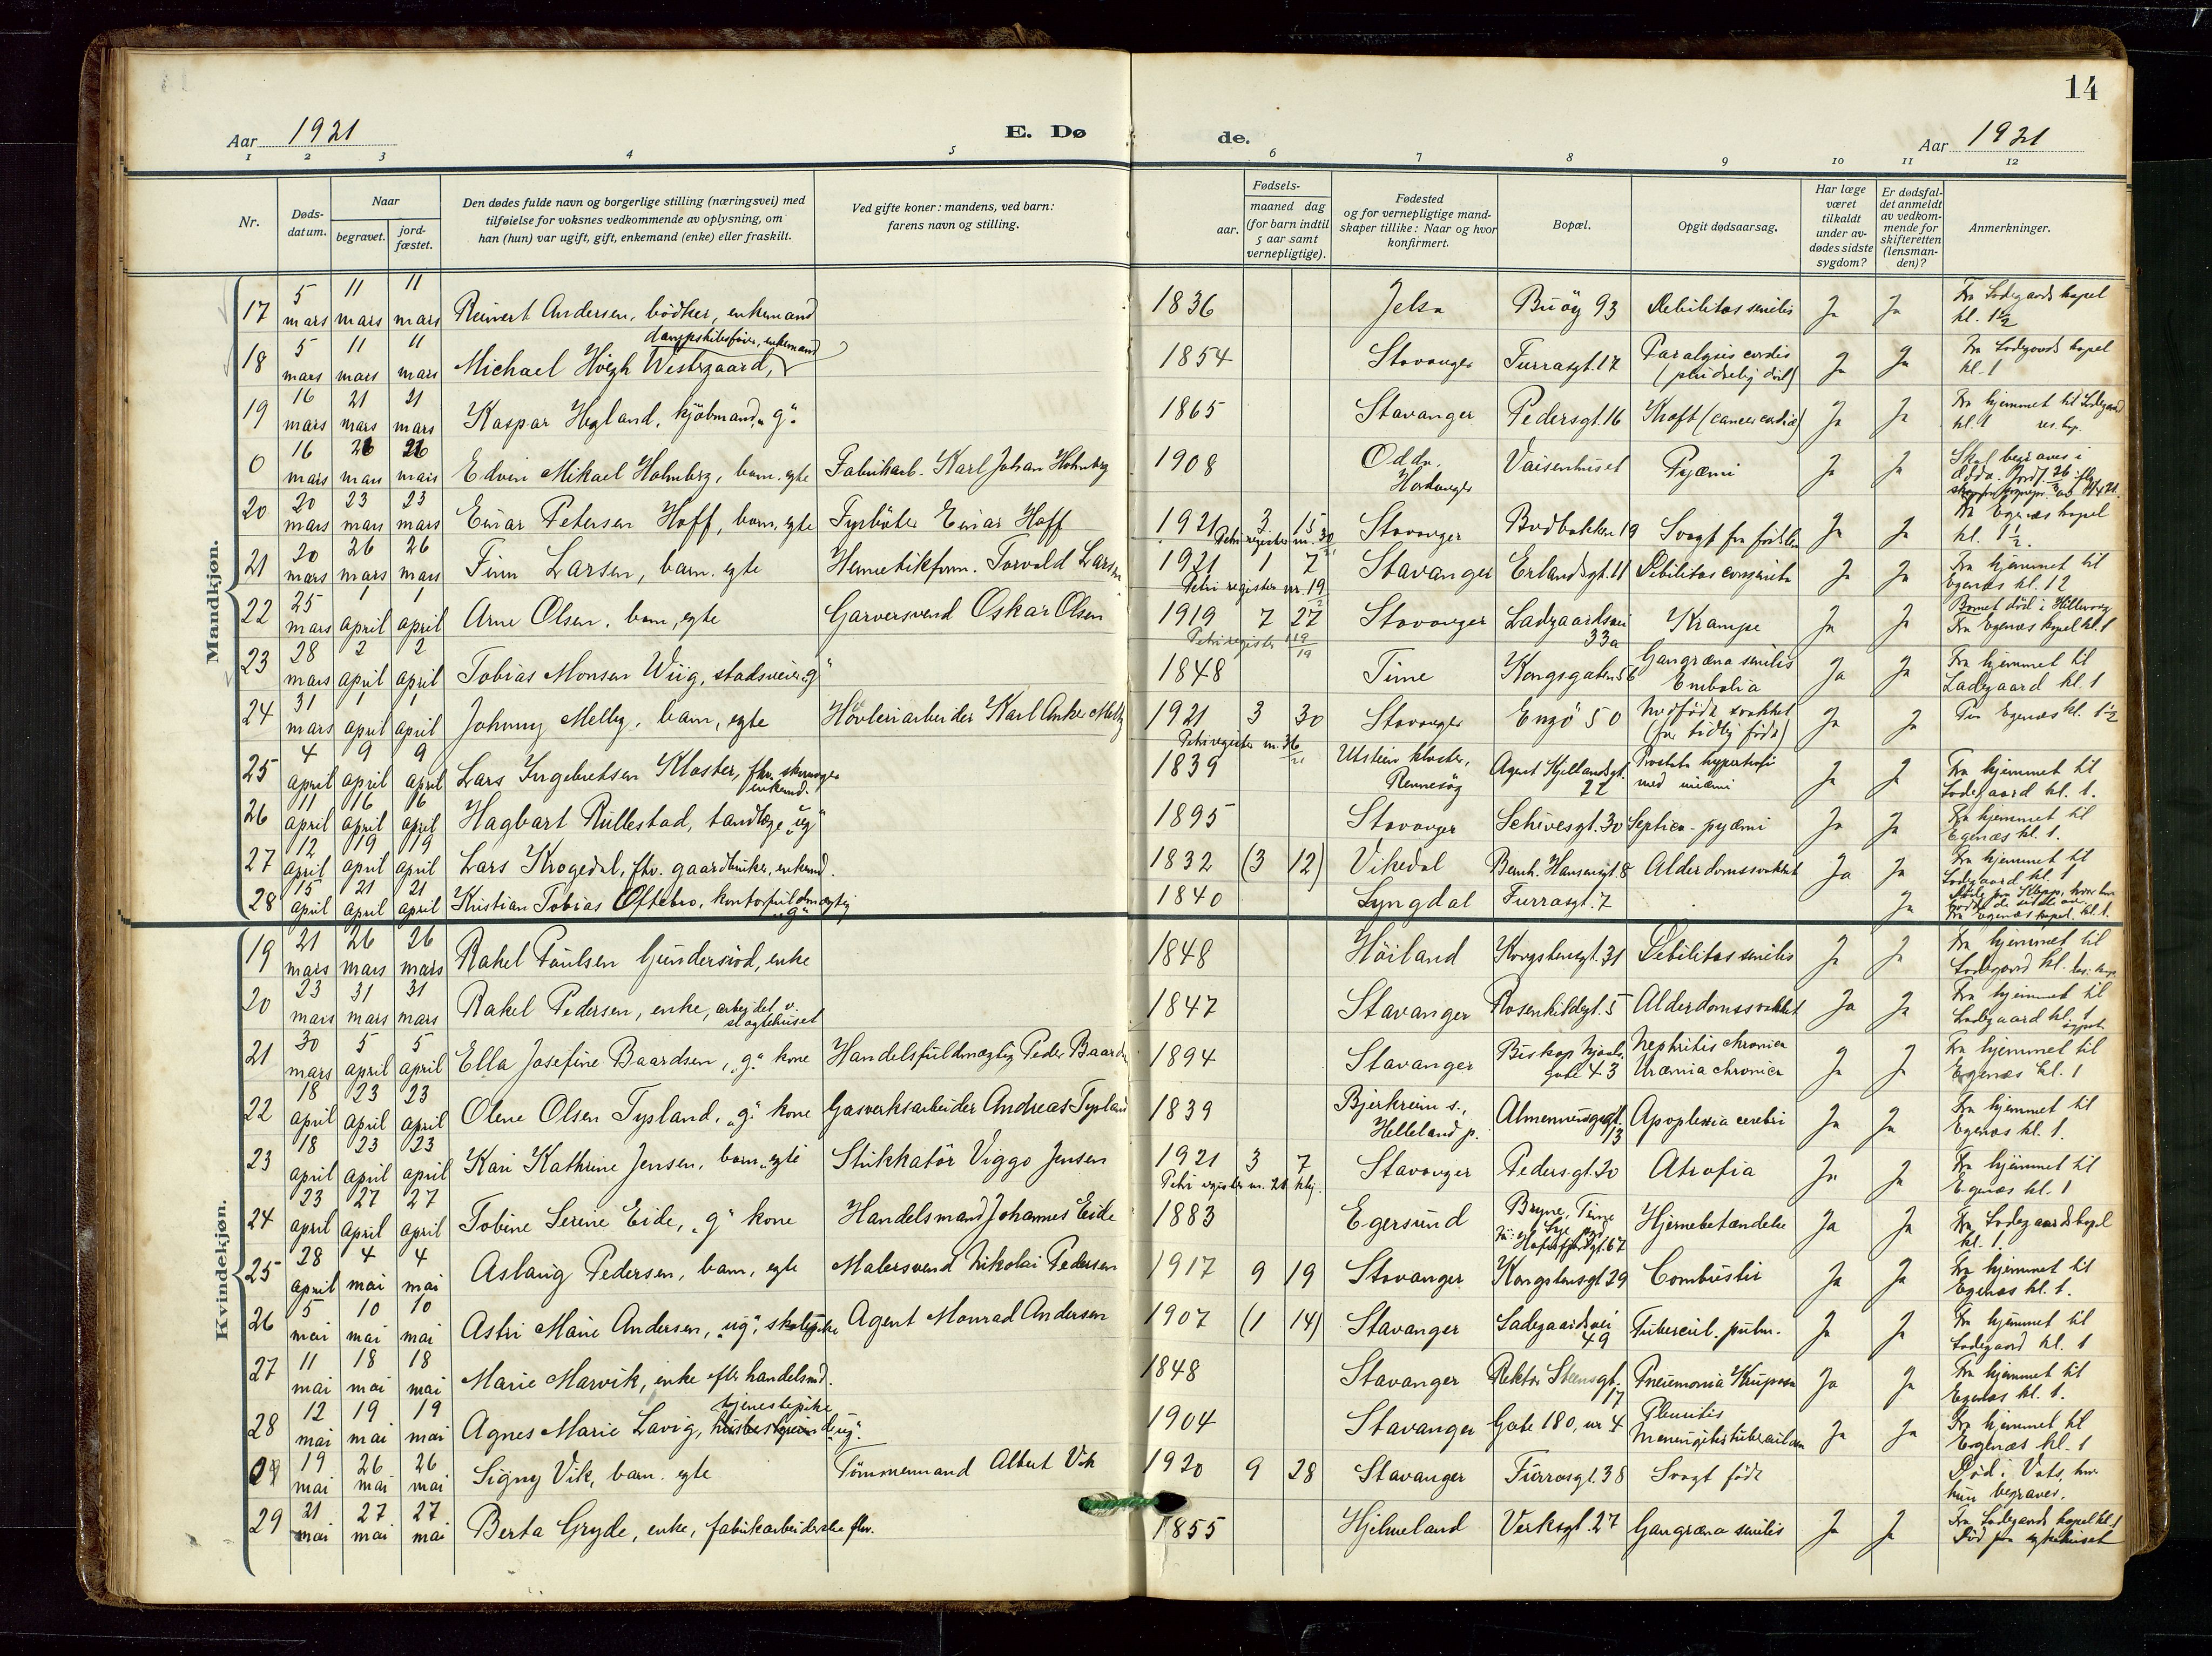 14
Aar 1921
E. Dø de.
Aar 1921
1 2 3 4 5 6 7 8 9 10 11 12
Nr.
Døds-datum.
Naar
begravet.
jord-fæstet.
Den dødes fulde navn og borgerlige stilling (næringsvei) med
tilføielse for voksnes vedkommende av oplysning, om
han (hun) var ugift, gift, enkemand (enke) eller fraskilt.
Ved gifte koner: mandens, ved barn:
farens navn og stilling.
Fødsels-
aar.
maaned dag
(for barn indtil
5 aar samt
vernepligtige).
Fødested
og for vernepligtige mand-
skaper tillike: Naar og hvor
konfirmert.
Bopæl.
Opgit dødsaarsag.
Har læge
været
tilkaldt
under av-
dødes sidste
sygdom?
Er dødsfal-
det anmeldt
av vedkom-
mende for
skifteretten
(lensman-
den)?
Anmerkninger.
Mandkjøn.
17 5 mars 11 mars 11 mars Reinert Andersen, bödker, enkemand 1836 Jelsa Buöy 93 Debilitas senilis Ja Ja Fra Ladegaards kapel kl. 1½
18 5 mars 11 mars 11 mars Michael Höegh Westergaard, dampskibsförer, enkemand 1854 Stavanger Furrasgt. 17 Paralysis cordis (pludselig död) Ja Ja Fra Ladegaards kapel kl. 1
19 16 mars 21 mars 21 mars Kaspar Hegland, kjöbmand, „g“ 1865 Stavanger Pedersgt. 16 Kraft (cancer cardiæ) Ja Ja Fra hjemmet til Ladegaard kl. 1
0 16 mars 26 mars 26 mars Edvin Mikael Holmberg, barn, egte Fabrikarb. Karl Johan Holmberg 1908 Odda, Hardanger Vaisenhuset Pyæmi Ja Ja Skal begraves i Odda.
20 20 mars 23 mars 23 mars Einar Petersen Hoff, barn, egte Fyrböter Einar Hoff 1921 3 15 Stavanger Bodbakken 19 Svagt fra födselen Ja Ja Fra Egenæs kapel kl. 1½.
Petri register nr. 30/21
21 20 mars 26 mars 26 mars Finn Larsen, barn, egte Hermetikform. Torvald Larsen 1921 1 7 Stavanger Erlandsgt. 11 Debilitas congenita Ja Ja Fra hjemmet til Egenæs kl. 12
Petri register nr. 19
22 25 mars 1 april 1 april Arne Olsen, barn, egte Garversvend Oskar Olsen 1919 7 27 Stavanger Ladgaardsvei 33a Krampe Ja Ja Barnet död i Hillevaag Fra Egenæs kapel kl. 1
Petri register 119/19
23 28 mars 2 april 2 april Tobias Monsen Wiig, stadsveier „g“ 1848 Time Kongsgaten 56 Gangræna senilis Embolia Ja Ja Fra hjemmet til Ladegaard kl. 1
24 31 mars 1 april 1 april Johnny Melby, barn, egte Hövleriarbeider Karl Anker Melby 1921 3 30 Stavanger Engö 50 Medfödt svakhet (for tidlig födt) Ja Ja Fra Egenæs kl. 1½
Petri register nr. 36/21
25 4 april 9 april 9 april Lars Ingebretsen Kloster, fhv. enkemd. 1839 Utstein kloster, Rennesöy Agent Kjellandsgt. 22 Prostata hypertrofi med uræmi Ja Ja Fra hjemmet til Ladegaard kl. 1.
26 11 april 16 april 16 april Hagbart Rullestad, tandlæge „ug“ 1895 Stavanger Schivesgt. 30 Septico-pyæmi Ja Ja Fra hjemmet til Egenæs kl. 1.
27 12 april 19 april 19 april Lars Krogedal, fhv. gaardbruker, enkemd. 1832 (3 12) Vikedal Bernh. Hansensgt. 8 Alderdomssvakhet Ja Ja Fra hjemmet til Ladegaard kl. 1
28 15 april 21 april 21 april Kristian Tobias Oftebro, kontorfuldmægtig „g“ 1840 Lyngdal Furrasgt. 7 Ja Fra Egenæs kapel kl. 1.
Kvindekjøn.
19 21 mars 26 mars 26 mars Rakel Paulsen Gundersröd, enke 1848 Höiland Kongstensgt. 31 Debilitas senilis Ja Ja Fra hjemmet til Ladegaard kl.
20 23 mars 31 mars 31 mars Rakel Pedersen, enke, arbejdet v. slagtehuset 1847 Stavanger Rosenkildegt. 5 Alderdomssvakhet Ja Ja Fra hjemmet til Ladegaard kl. 1
21 30 mars 5 april 5 april Ella Josefine Baardsen, „g“ kone Handelsfuldmægtig Peder Baardsen 1894 Stavanger Biskop gate 43 Nephritis chronica Uræmia chronica Ja Ja Fra hjemmet til Egenæs kl. 1
22 18 april 23 april 23 april Olene Olsen Tysland, „g“ kone Gasverksarbeider Andreas Tysland 1839 Bjerkreim s., Helleland p. Almenningsgt. 13 Apoplexia cerebri Ja Ja Fra hjemmet til Egenæs kl. 1.
23 18 april 23 april 23 april Kari Kathrine Jensen, barn, egte Stukkatör Viggo Jensen 1921 3 7 Stavanger Pedersgt. 20 Atrofia Ja Ja Fra hjemmet til Egenæs kl. 1
24 23 april 27 april 27 april Tobine Serine Eide, „g“ kone Handelsmand Johannes Eide 1883 Egersund Bryne, Time Hafrsfjordgt. 67 Hjernebetændelse Ja Ja Fra Ladegaards kapel kl. 1
25 28 april 4 mai 4 mai Aslaug Pedersen, barn, egte Malersvend Nikolai Pedersen 1917 9 19 Stavanger Kongstensgt 29 Combustio Ja Ja Fra hjemmet til Egenæs kl. 1.
26 5 mai 10 mai 10 mai Astri Marie Andersen, „ug“, skolepike Agent Monrad Andersen 1907 (1 14) Stavanger Ladegaardsvei 49 Tubercul. pulm. Ja Ja Fra hjemmet til Ladegaard kl. 1
27 11 mai 18 mai 18 mai Marie Marvik, enke efter handelsmd. 1848 Stavanger Rektor Steensgt. 17 Pneumonia Kruposa Ja Ja Fra hjemmet til Egenæs kl. 1.
28 12 mai 19 mai 19 mai Agnes Marie Lavig, tjenestepike „ug“ 1904 Stavanger Gate 180, nr 4 Pleuritis Meningitis tuberculosa Ja Ja Fra hjemmet til Egenæs kl. 1
0 19 mai 26 mai 26 mai Signy Vik, barn, egte Tömmermand Albert Vik 1920 9 28 Stavanger Furrasgt. 38 Svagt födt Död i Vats, hvor hun begraves.
29 21 mai 27 mai 27 mai Berta Gryde, enke, fabrikarbeiderske fhv. 1855 Hjelmeland Verksgt. 27 Gangræna senilis Ja Ja Fra Ladegaards kapel kl. 1 Död paa sykehuset